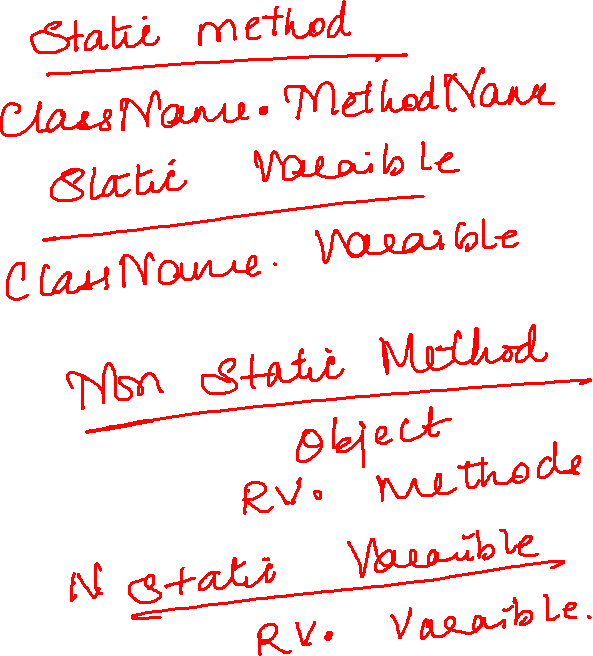 Static method
ClassName. MethodName
Static Varaible
ClassName. Varaible
Non Static Method
Object
RV. Methods
N Static Varaible
RV. Varaible.